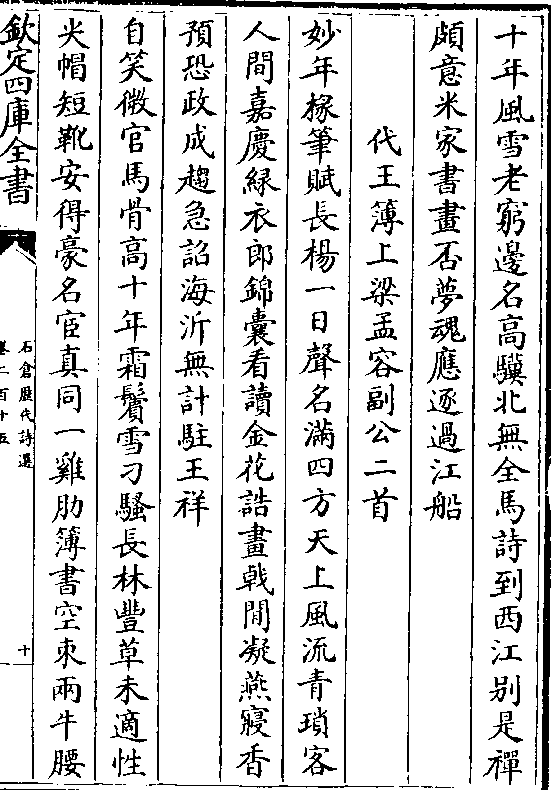 十年風雪老窮邊名高驥北無全馬詩到西江别是禪
頗意米家書畫否夢魂應逐過江船
代王簿上梁孟容副公二首
妙年椽筆賦長楊一日聲名滿四方天上風流青瑣客
人間嘉慶緑衣郎錦囊看讀金花誥畫戟閒凝燕寢香
預恐政成趨急詔海沂無計駐王祥
自笑微官馬骨高十年霜鬢雪刁騷長林豐草未適性
尖帽短靴安得豪名宦真同一雞肋簿書空束兩牛腰
欽定四庫全書
石倉歷代詩選
卷二百十五
十